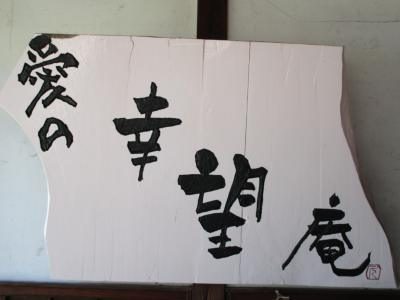 愛の
幸望庵